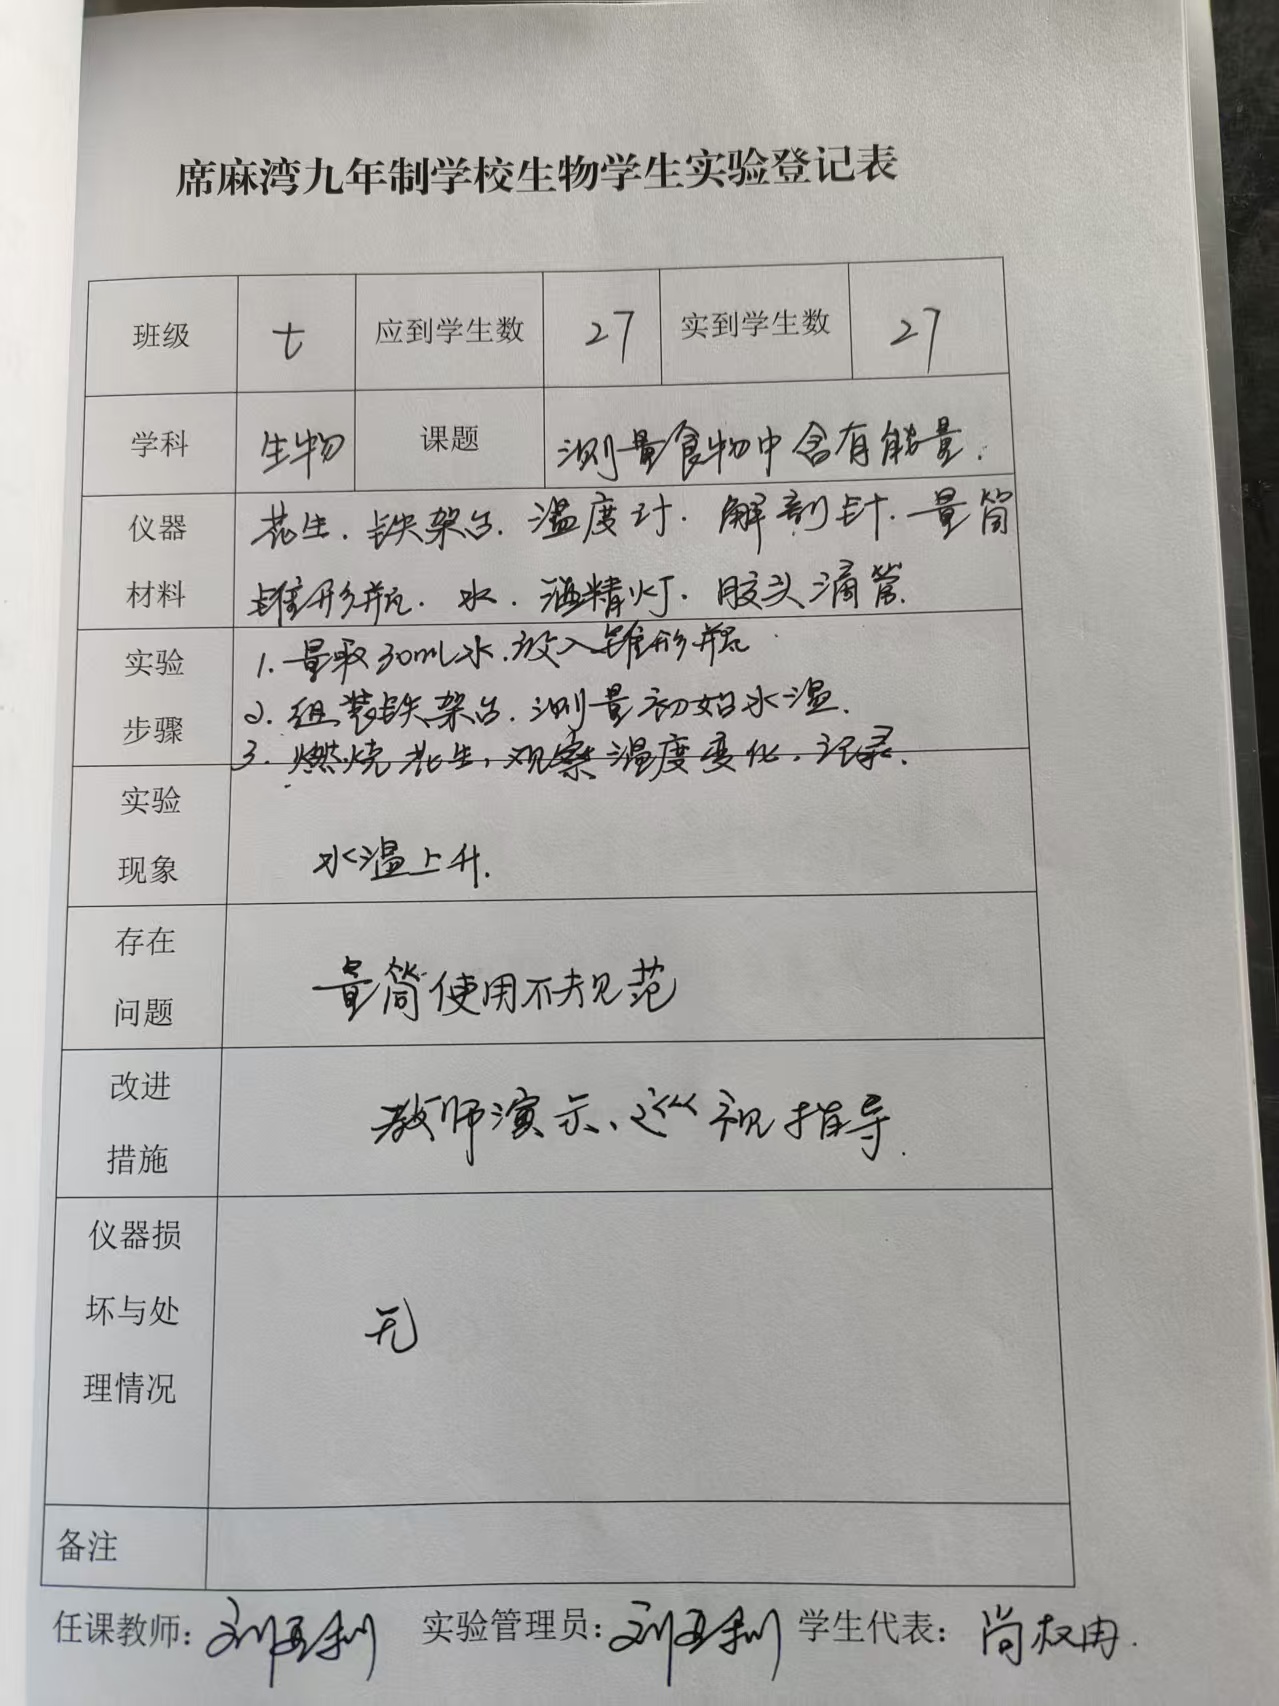 席麻湾九年制学校生物学生实验登记表
班级 七 应到学生数 27 实到学生数 27
学科 生物 课题 测量食物中含有能量.
仪器 花生.铁架台.温度计.解剖针.量筒
材料 锥形瓶.水.酒精灯.胶头滴管.
实验 1.量取30mL水.放入锥形瓶
步骤 2.组装铁架台.测量初始水温.
3.燃烧花生,观察温度变化.记录.
实验
现象 水温上升.
存在
问题 量筒使用不规范
改进
措施 教师演示、巡视指导.
仪器损
坏与处 无
理情况
备注
任课教师: 实验管理员: 学生代表: 尚